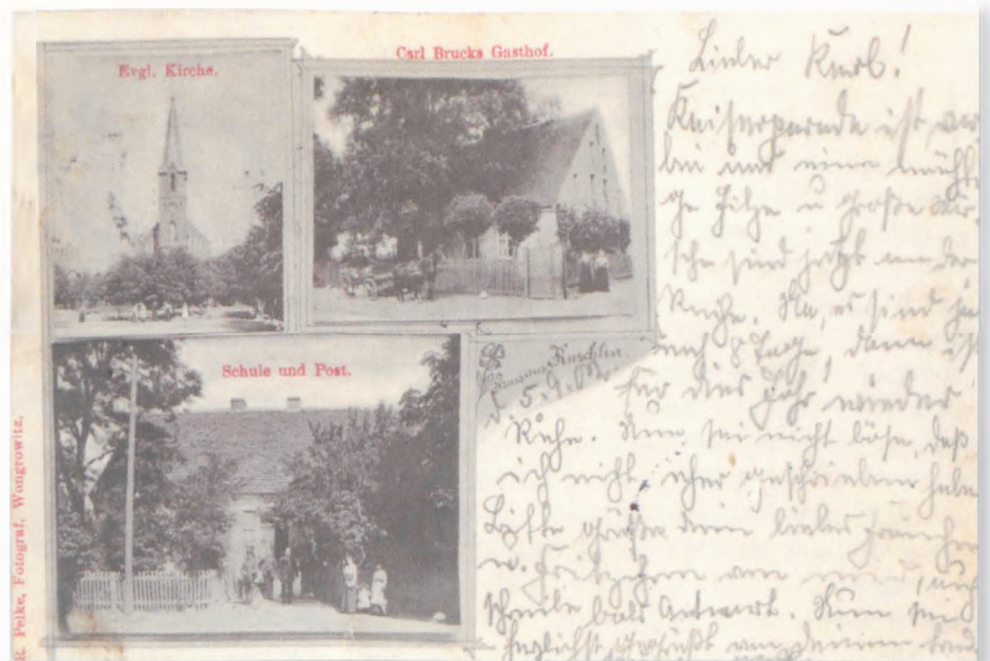 Evgl. Kirche.
Carl Brucks Gasthof.
Schule und Post.
R. Pelke, Fotograf, Wongrowitz.
Lieber
Kaiserparade ist vor
bin und eine mächti
ge Hitze u große
sche sind jetzt an der
Reihe. Na, es sind ja
nur 8 Tage, dann ist
d. 5.9. für dies Jahr wieder
Ruhe. Nun sei nicht böse, daß
ich nicht eher geschrieben habe
Bitte grüße dein liebes Frauchen
u. von mir,
schreibe bald Antwort. Nun sei
herzlichst gegrüßt von Deinem